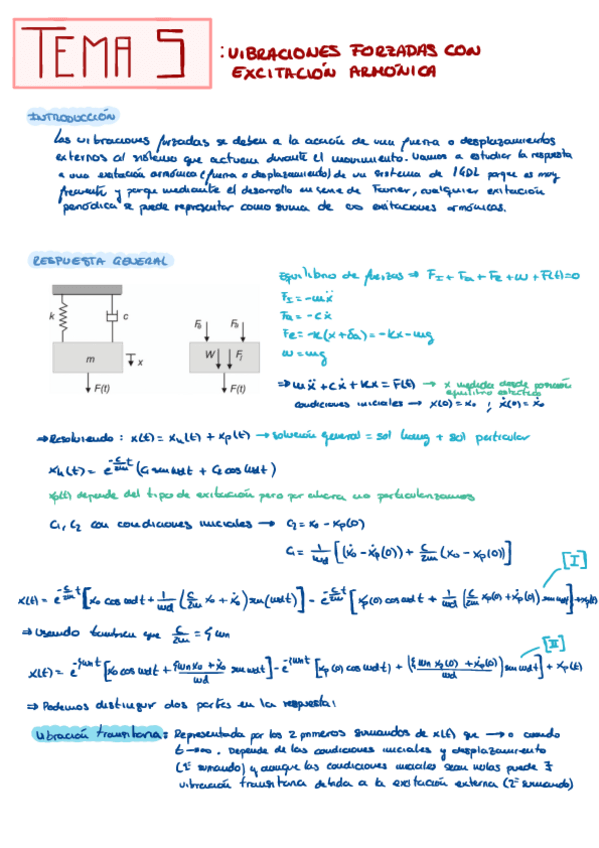 TEMA 5 : VIBRACIONES FORZADAS CON
EXCITACIÓN ARMÓNICA
INTRODUCCIÓN
Las vibraciones forzadas se deben a la acción de una fuerza o desplazamientos
externos al sistema que actuan durante el movimiento. Vamos a estudiar la respuesta
a una excitación armónica (fuerza o desplazamiento) de un sistema de 1GDL porque es muy
frecuente y porque mediante el desarrollo en serie de Fourier, cualquier excitación
periódica se puede representar como suma de ∞ excitaciones armónicas.
RESPUESTA GENERAL
Equilibrio de fuerzas ⇒ F_I + F_a + F_e + w + F(t) = 0
F_I = -mẍ
F_a = -cẋ
F_e = -k(x+δ_a) = -kx - mg
w = mg
k c m x F(t)
W F(t)
⇒ mẍ + cẋ + kx = F(t) → x medida desde posición
equilibrio estático
condiciones iniciales → x(0) = x₀ ; ẋ(0) = ẋ₀
⇒ Resolviendo : x(t) = x_h(t) + x_p(t) → solución general = sol homg + sol particular
x_h(t) = e^(-c/2m t) (C₁ sen wdt + C₂ cos wdt)
x_p(t) depende del tipo de excitación pero por ahora no particularizamos
C₁, C₂ con condiciones iniciales → C₂ = x₀ - x_p(0)
C₁ = 1/wd [(ẋ₀ - ẋ_p(0)) + c/2m (x₀ - x_p(0))]
[I]
x(t) = e^(-c/2m t) [x₀ cos wdt + 1/wd (c/2m x₀ + ẋ₀) sen(wdt)] - e^(-c/2m t) [x_p(0) cos wdt + 1/wd (c/2m x_p(0) + ẋ_p(0)) sen wdt] + x_p(t)
⇒ Usando tambien que c/2m = ξ wn
[II]
x(t) = e^(-ξwn t) [x₀ cos wdt + (ξwn x₀ + ẋ₀)/wd sen wdt] - e^(-ξwn t) [x_p(0) cos wdt) + ((ξ wn x_p(0) + ẋ_p(0))/wd) sen wdt] + x_p(t)
⇒ Podemos distinguir dos partes en la respuesta:
Vibración transitoria: Representada por los 2 primeros sumandos de x(t) que → 0 cuando
t → ∞. Depende de las condiciones iniciales y desplazamiento
(1º sumando) y aunque las condiciones iniciales sean nulas puede ∃
vibración transitoria debida a la excitación externa (2º sumando)